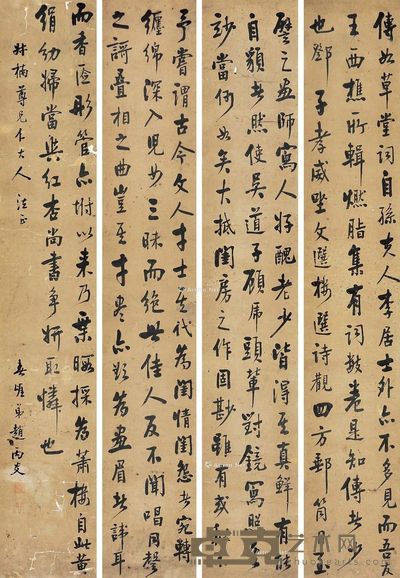 傳如草堂詞自孫夫人李居士外亦不多見而吾友
王西樵所輯燃脂集有詞數卷是知傳者少
也鄧子孝威坐文選樓選詩觀四方郵筒
譬之畫師寫人好醜老少皆得其真鮮有能
自貌者然使吳道子顧虎頭輩對鏡寫照其
妙當何如矣大抵閨房之作固尠雖有或
予嘗謂古今文人才士每代為閨情閨怨者宛轉
纏綿深入兒女三昧而絕世佳人反不聞唱同聲
之謌疊相之曲豈其才盡亦欲為畫眉者諱耳
而香奩彤管亦附以來乃棄暇採為蕭樓自此黃
絹幼婦當與紅杏尚書爭妍取憐也
楠尊兄仁大人 法正
弟趙丙炎